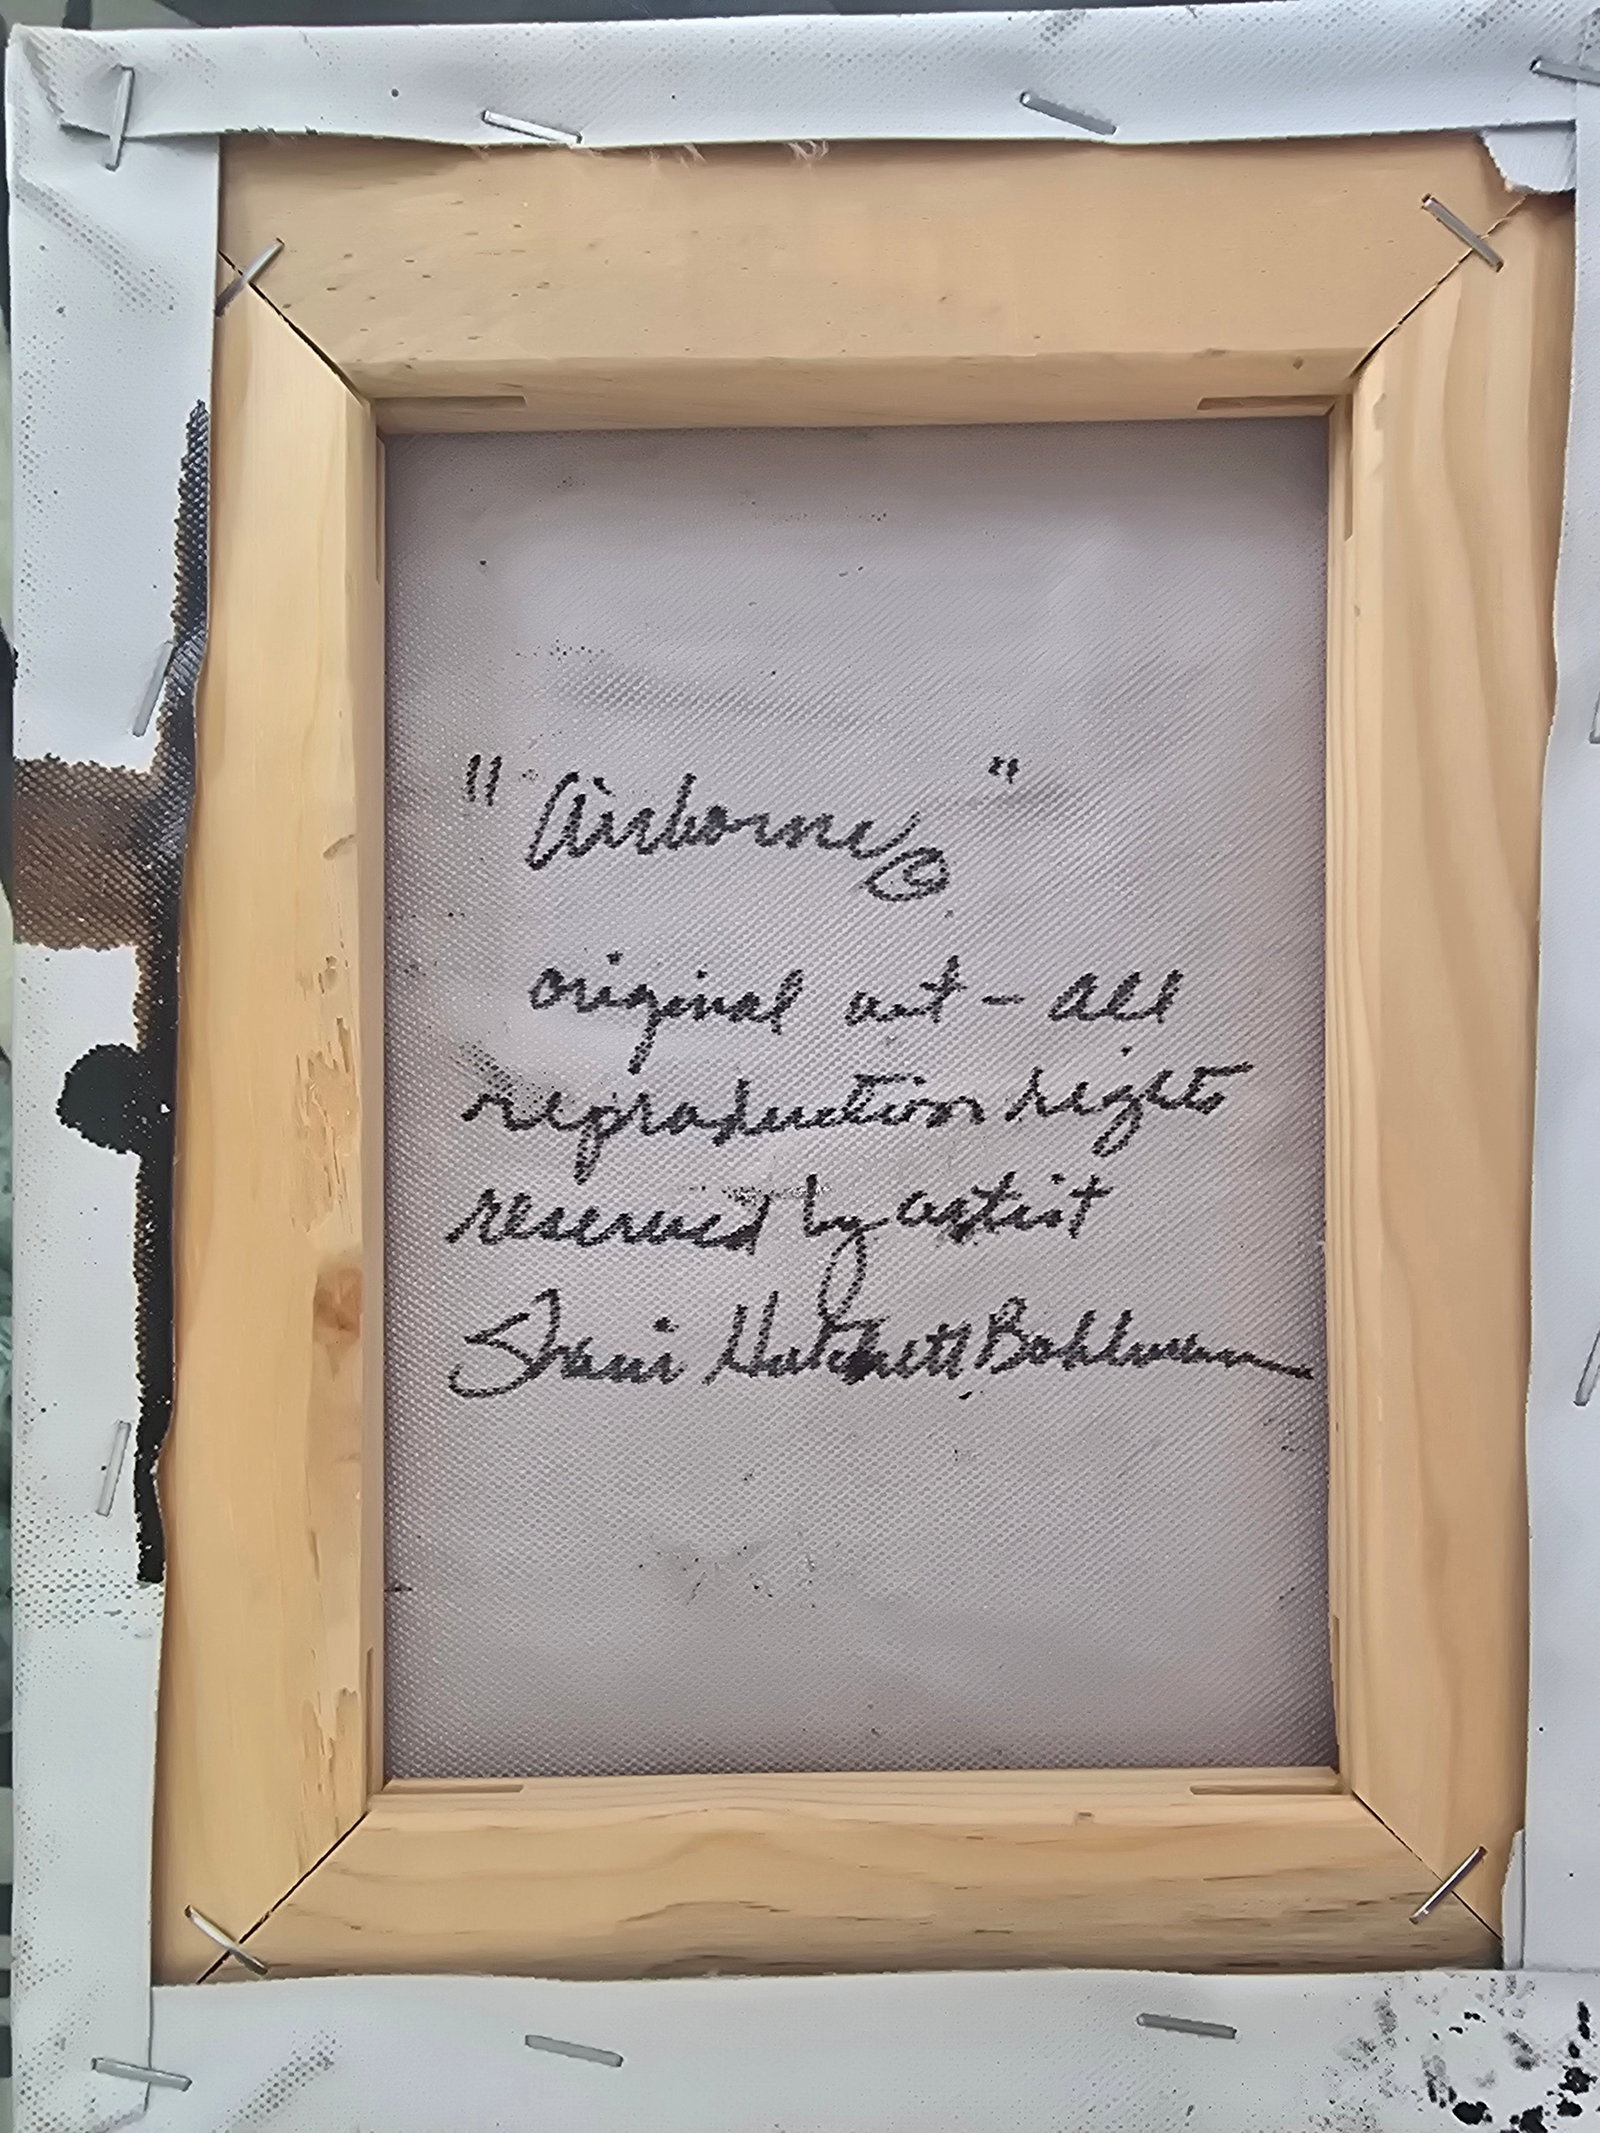 "Airborne ©"
original art - all
reproduction rights
reserved by artist
Shani Hatchett Bohlmann